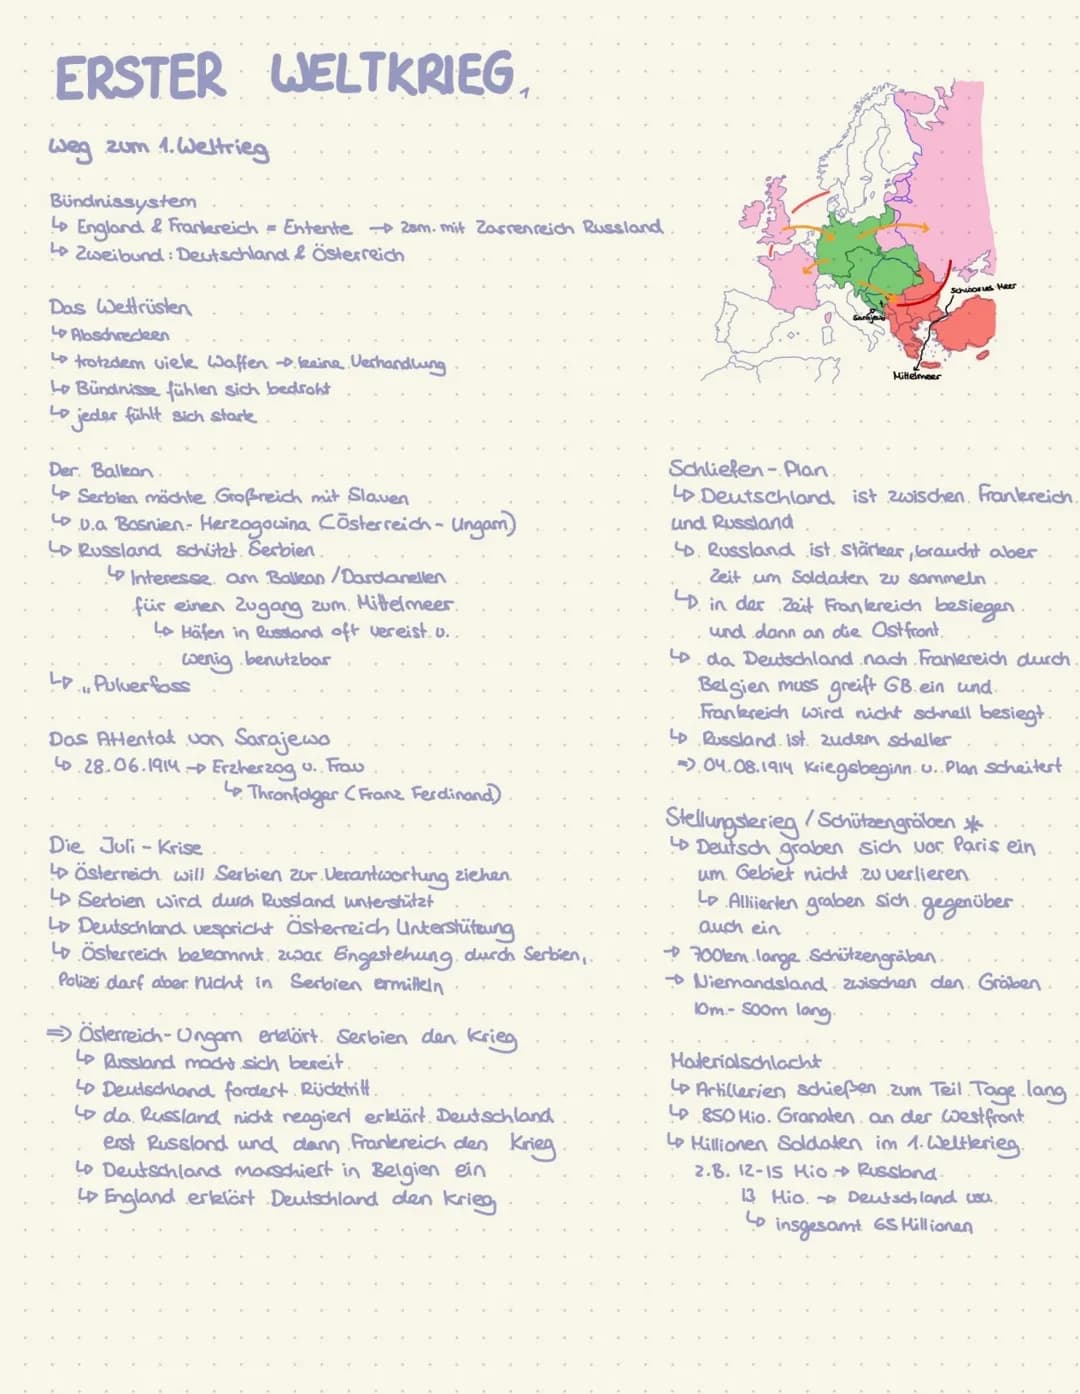 ERSTER WELTKRIEG,
Weg zum 1. Weltrieg
Bündnissystem
↳ England & Frankreich = Entente → zsm. mit Zarrenreich Russland
↳ Zweibund: Deutschland & Österreich
Das Wettrüsten
↳ Abschrecken
↳ trotzdem viele Waffen → keine Verhandlung
↳ Bündnisse fühlen sich bedroht
↳ jeder fühlt sich stark
Der Balkan
↳ Serbien möchte Großreich mit Slaven
↳ v.a Bosnien-Herzogowina (Österreich-Ungarn)
↳ Russland schützt Serbien
↳ Interesse am Balkan / Dardanellen
für einen Zugang zum Mittelmeer
↳ Häfen in Russland oft vereist u.
wenig benutzbar
↳ „Pulverfass
Das Attentat von Sarajewo
↳ 28.06.1914 → Erzherzog u. Frau
↳ Thronfolger (Franz Ferdinand)
Die Juli-Krise
↳ Österreich will Serbien zur Verantwortung ziehen
↳ Serbien wird durch Russland unterstützt
↳ Deutschland vespricht Österreich Unterstützung
↳ Österreich bekommt zwar Eingestehung durch Serbien,
Polizei darf aber nicht in Serbien ermitteln
⇒ Österreich-Ungarn erklärt Serbien den Krieg
↳ Russland macht sich bereit
↳ Deutschland fordert Rücktritt
↳ da Russland nicht reagiert erklärt Deutschland
erst Russland und dann Frankreich den Krieg
↳ Deutschland marschiert in Belgien ein
↳ England erklärt Deutschland den Krieg
Schwarzes Meer
Sarajewo
Mittelmeer
Schliefen-Plan
↳ Deutschland ist zwischen Frankreich
und Russland
↳ Russland ist stärker, braucht aber
Zeit um Soldaten zu sammeln
↳ in der Zeit Frankreich besiegen
und dann an die Ostfront
↳ da Deutschland nach Frankreich durch
Belgien muss greift GB ein und
Frankreich wird nicht schnell besiegt
↳ Russland ist zudem scheller
⇒ 04.08.1914 Kriegsbeginn u. Plan scheitert
Stellungskrieg / Schützengräben *
↳ Deutsch graben sich vor Paris ein
um Gebiet nicht zu verlieren
↳ Alliierten graben sich gegenüber
auch ein
→ 700km lange Schützengräben
→ Niemandsland zwischen den Gräben
10m - 500m lang
Materialschlacht
↳ Artillerien schießen zum Teil Tage lang
↳ 850 Mio. Granaten an der Westfront
↳ Millionen Soldaten im 1. Weltkrieg
z.B. 12-15 Mio → Russland
13 Mio. → Deutschland usw.
↳ insgesamt 65 Millionen